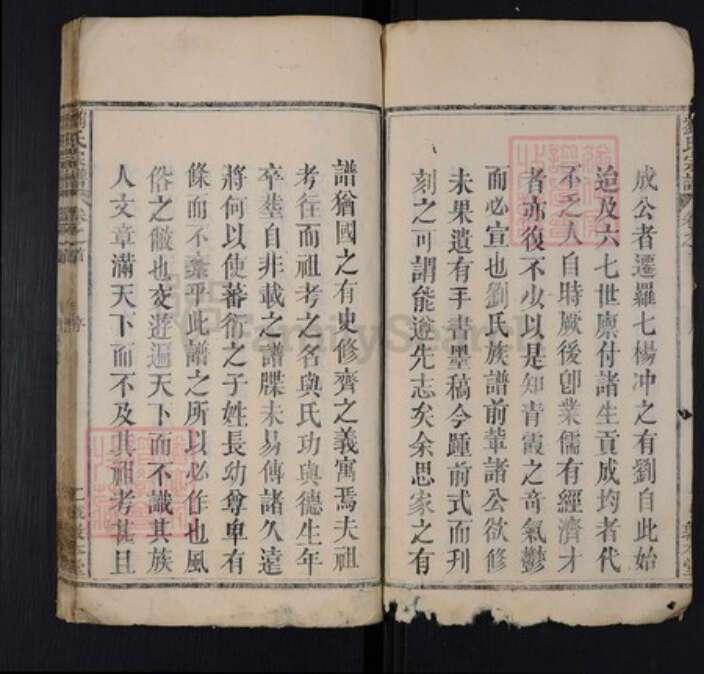 成公者遷羅七楊冲之有劉自此始
迨及六七世廪付諸生貢成均者代
不乏人自時厥後卽業儒有經濟才
者亦復不少以是知青霞之奇氣鬱
而必宣也劉氏族譜前輩諸公欲修
未果遺有手書墨稿今踵前式而刋
刻之可謂能遂先志矣余思家之有
譜猶國之有史修齊之義寓焉夫祖
考往而祖考之名與氏功與德生年
卒塟自非載之譜牒未易傳諸久遠
將何以使蕃衍之子姓長幼尊卑有
條而不紊乎此譜之所以必作也風
俗之敝也交遊遍天下而不識其族
人文章滿天下而不及其祖考甚且
FamilySearch